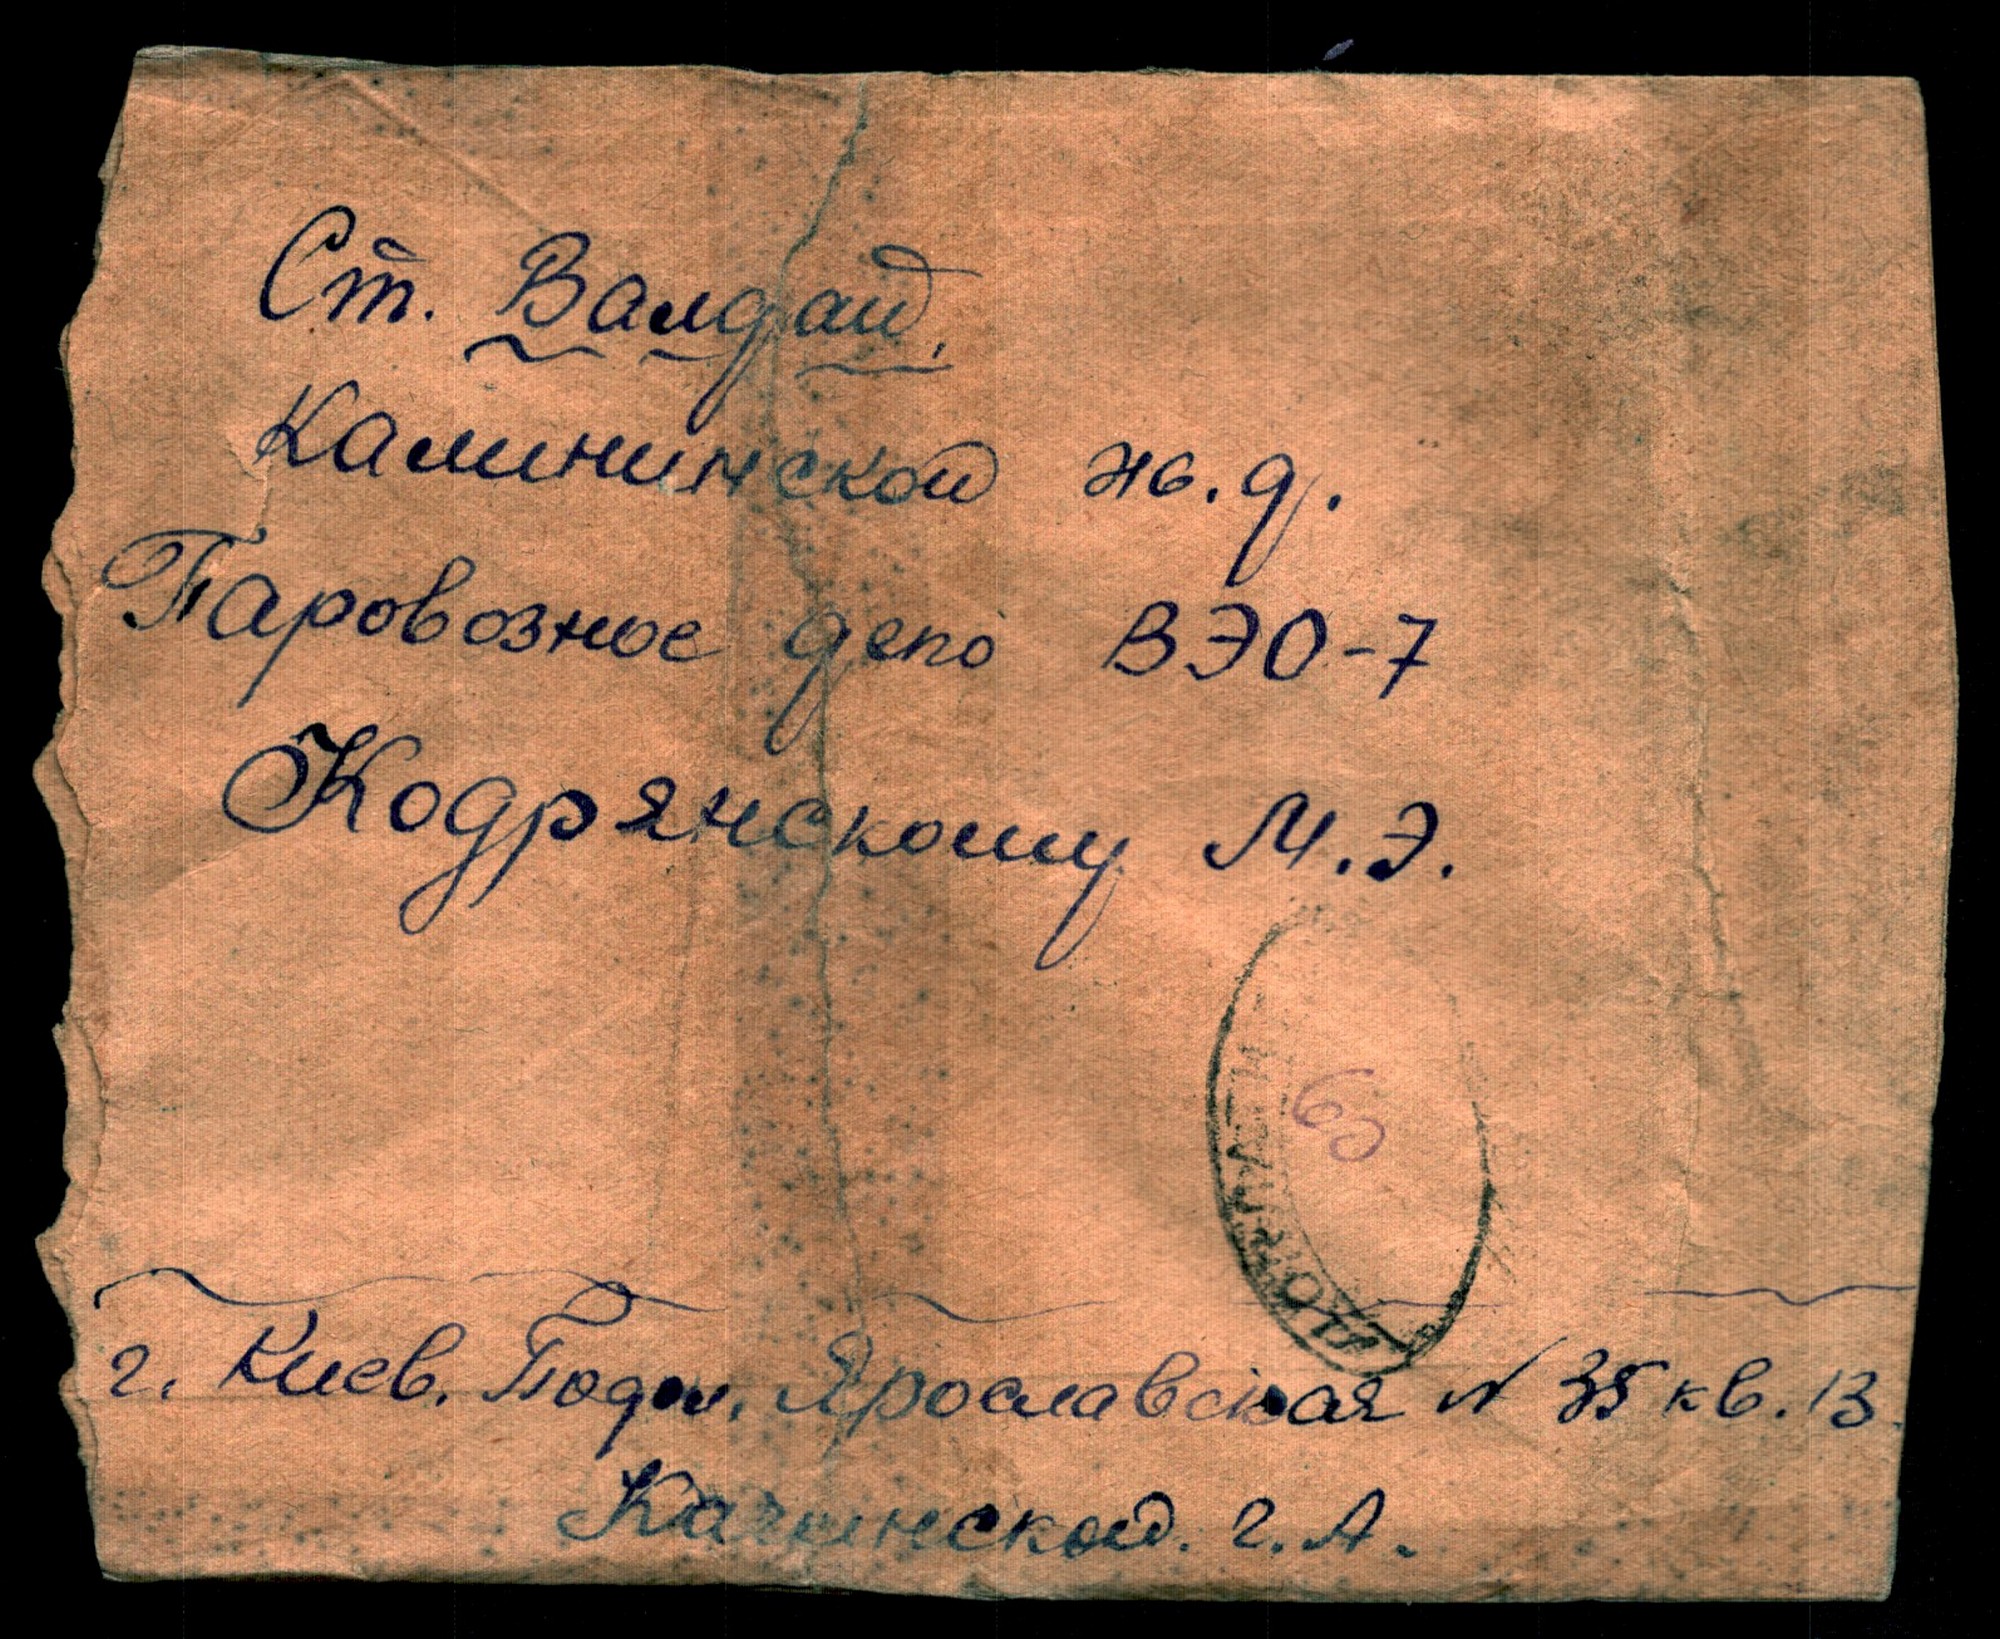 Ст. Валдай,
Калининской ж. д.
Паровозное депо ВЭО-7
Кодрянскому М. Э.
ДОПЛАТИТЬ
60
г. Киев. Подол, Ярославская № 35 кв. 13.
г. А.